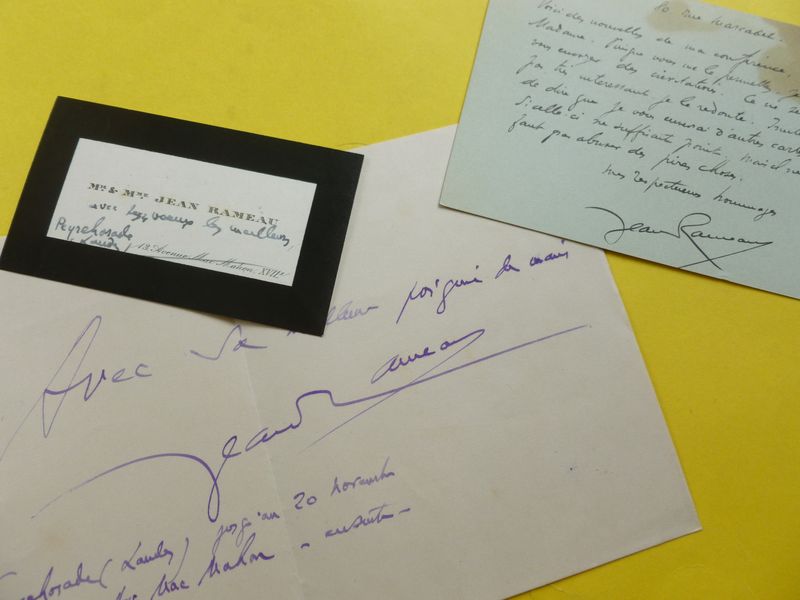 Mr. & Mme JEAN RAMEAU
avec leurs voeux les meilleurs
Peyrehorade
(Landes) 12, Avenue Mac-Mahon, XVIIe
10 rue Marcadet.
Voici des nouvelles de ma conférence,
Madame. Puisque vous me le permettez, je
vous envoie des invitations. Ce ne se
pas très intéressant je le redoute. Inutile
de dire que je vous enverrai d'autres cartes
si celle-ci ne suffisent point, mais il ne
faut pas abuser des pires choses.
mes respectueux hommages
Jean Rameau
Avec sa meilleure poignée de main
Jean Rameau
Peyrehorade (Landes) jusqu'au 20 novembre
Mac Mahon - ensuite -